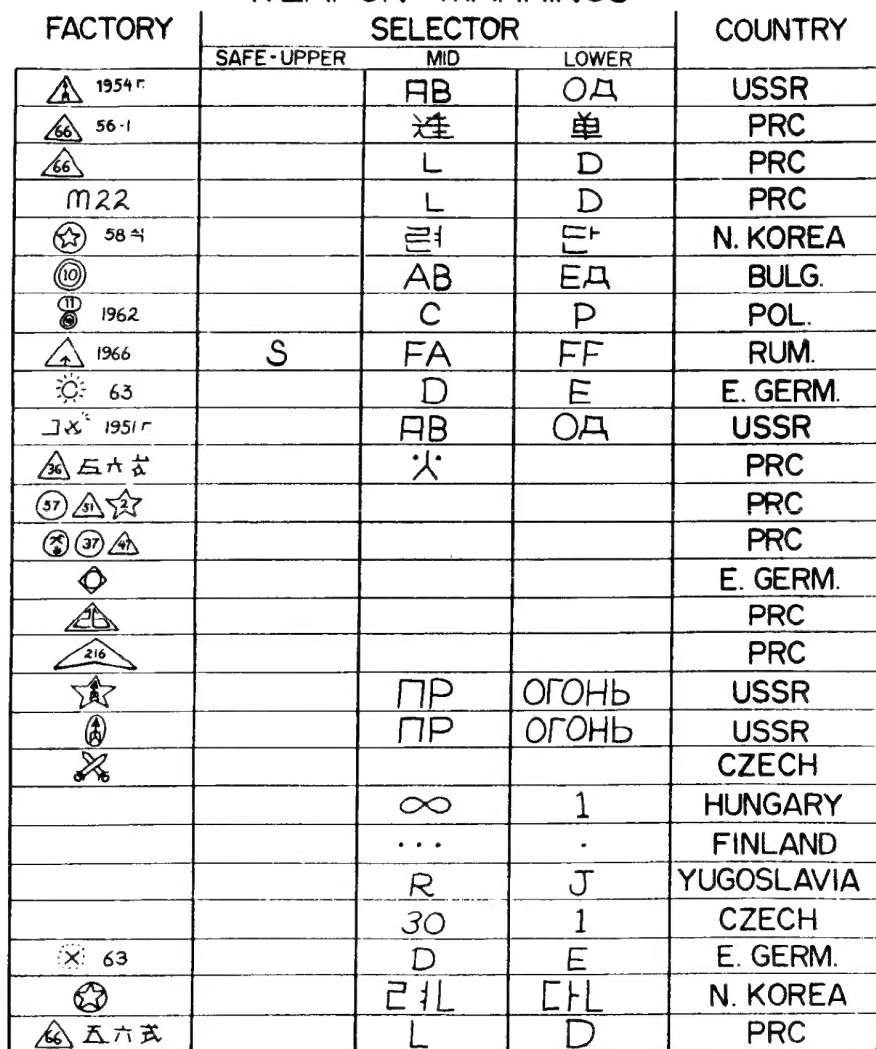 WEAPON MARKINGS
FACTORY SELECTOR COUNTRY
SAFE-UPPER MID LOWER
1954 г. АВ ОД USSR
66 56-1 連 单 PRC
66 L D PRC
M22 L D PRC
58식 려 단 N. KOREA
10 АВ ЕД BULG.
11 1962 C P POL.
1966 S FA FF RUM.
63 D E E. GERM.
1951 г АВ ОД USSR
36 PRC
57 31 2 PRC
37 47 PRC
E. GERM.
26 PRC
216 PRC
ПР ОГОНЬ USSR
ПР ОГОНЬ USSR
CZECH
∞ 1 HUNGARY
... . FINLAND
R J YUGOSLAVIA
30 1 CZECH
63 D E E. GERM.
N. KOREA
66 五六式 L D PRC